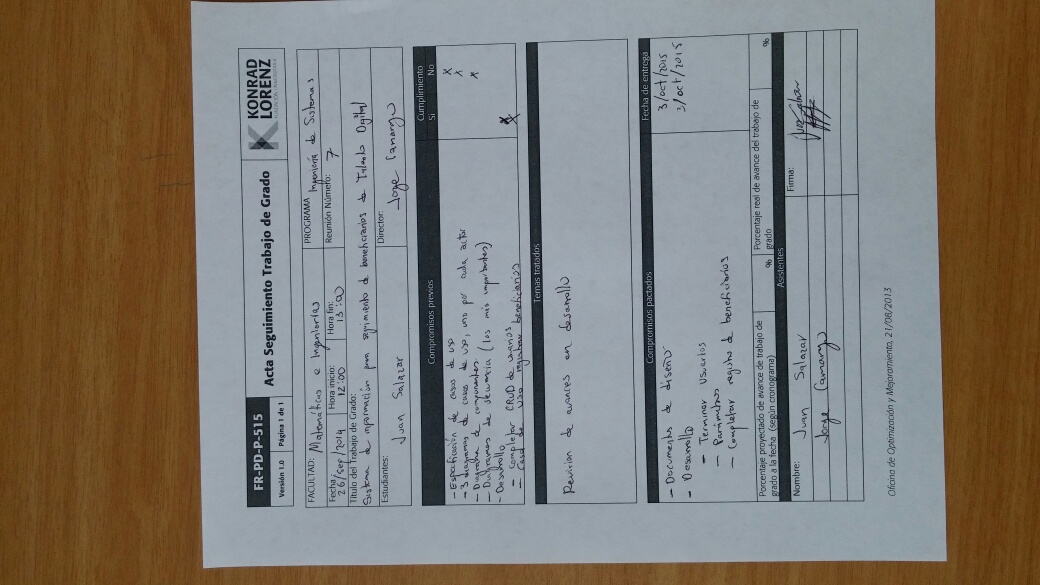 FR-PD-P-515
Versión 1.0 Página 1 de 1
Acta Seguimiento Trabajo de Grado
KONRAD
LORENZ
FUNDACIÓN UNIVERSITARIA
FACULTAD: Matemáticas e Ingenierías
PROGRAMA Ingeniería de Sistemas
Fecha: 26/sep/2014
Hora inicio: 12:00
Hora fin: 13:00
Reunión Número: 7
Título del Trabajo de Grado:
Sistema de información para seguimiento de beneficiarios de Talento Digital
Estudiantes:
Juan Salazar
Director:
Jorge Camargo
Compromisos previos
Cumplimiento
Si No
- Especificación de casos de uso X
- 3 diagramas de casos de uso, uno por cada actor X
- Diagrama de componentes X
- Diagramas de secuencia (los más importantes)
- Desarrollo
- Completar CRUD de usuarios X
- Caso de uso registrar beneficiarios X
Temas tratados
Revision de avances en desarrollo
Compromisos pactados
Fecha de entrega
- Documentos de diseño 3/oct/2015
- Desarrollo 3/oct/2015
- Terminar usuarios
- Parámetros
- Completar registro de beneficiarios
Porcentaje proyectado de avance de trabajo de
grado a la fecha (según cronograma) %
Porcentaje real de avance del trabajo de
grado %
Asistentes
Nombre: Juan Salazar
Firma: Juan Salazar
Jorge Camargo
Oficina de Optimización y Mejoramiento, 21/08/2013